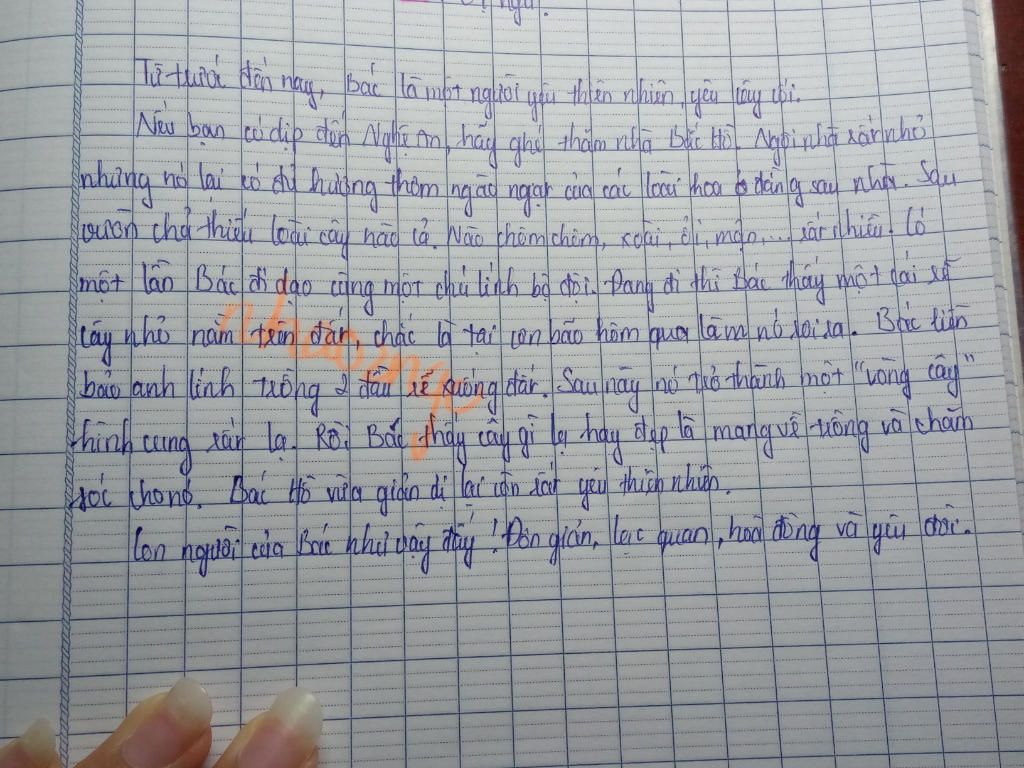 ngữ.
Từ trước đến nay, Bác là một người yêu thiên nhiên, yêu cây cối.
Nếu bạn có dịp đến Nghệ An, hãy ghé thăm nhà Bác Hồ. Ngôi nhà rất nhỏ
nhưng nó lại có đủ hương thơm ngào ngạt của các loài hoa ở đằng sau nhà. Sau
vườn chả thiếu loài cây nào cả. Nào chôm chôm, xoài, ổi, mận,... rất nhiều. Có
một lần Bác đi dạo cùng một chú lính bộ đội. Đang đi thì Bác thấy một cái rễ
cây nhỏ nằm trên đất, chắc là tại cơn bão hôm qua làm nó rơi ra. Bác liền
bảo anh lính trồng 2 đầu rễ xuống đất. Sau này nó trở thành một "vòng cây"
hình cung rất lạ. Rồi Bác thấy cây gì lạ hay đẹp là mang về trồng và chăm
sóc cho nó. Bác Hồ vừa giản dị lại còn rất yêu thiên nhiên.
Con người của Bác như vậy đấy! Đơn giản, lạc quan, hoà đồng và yêu đời.